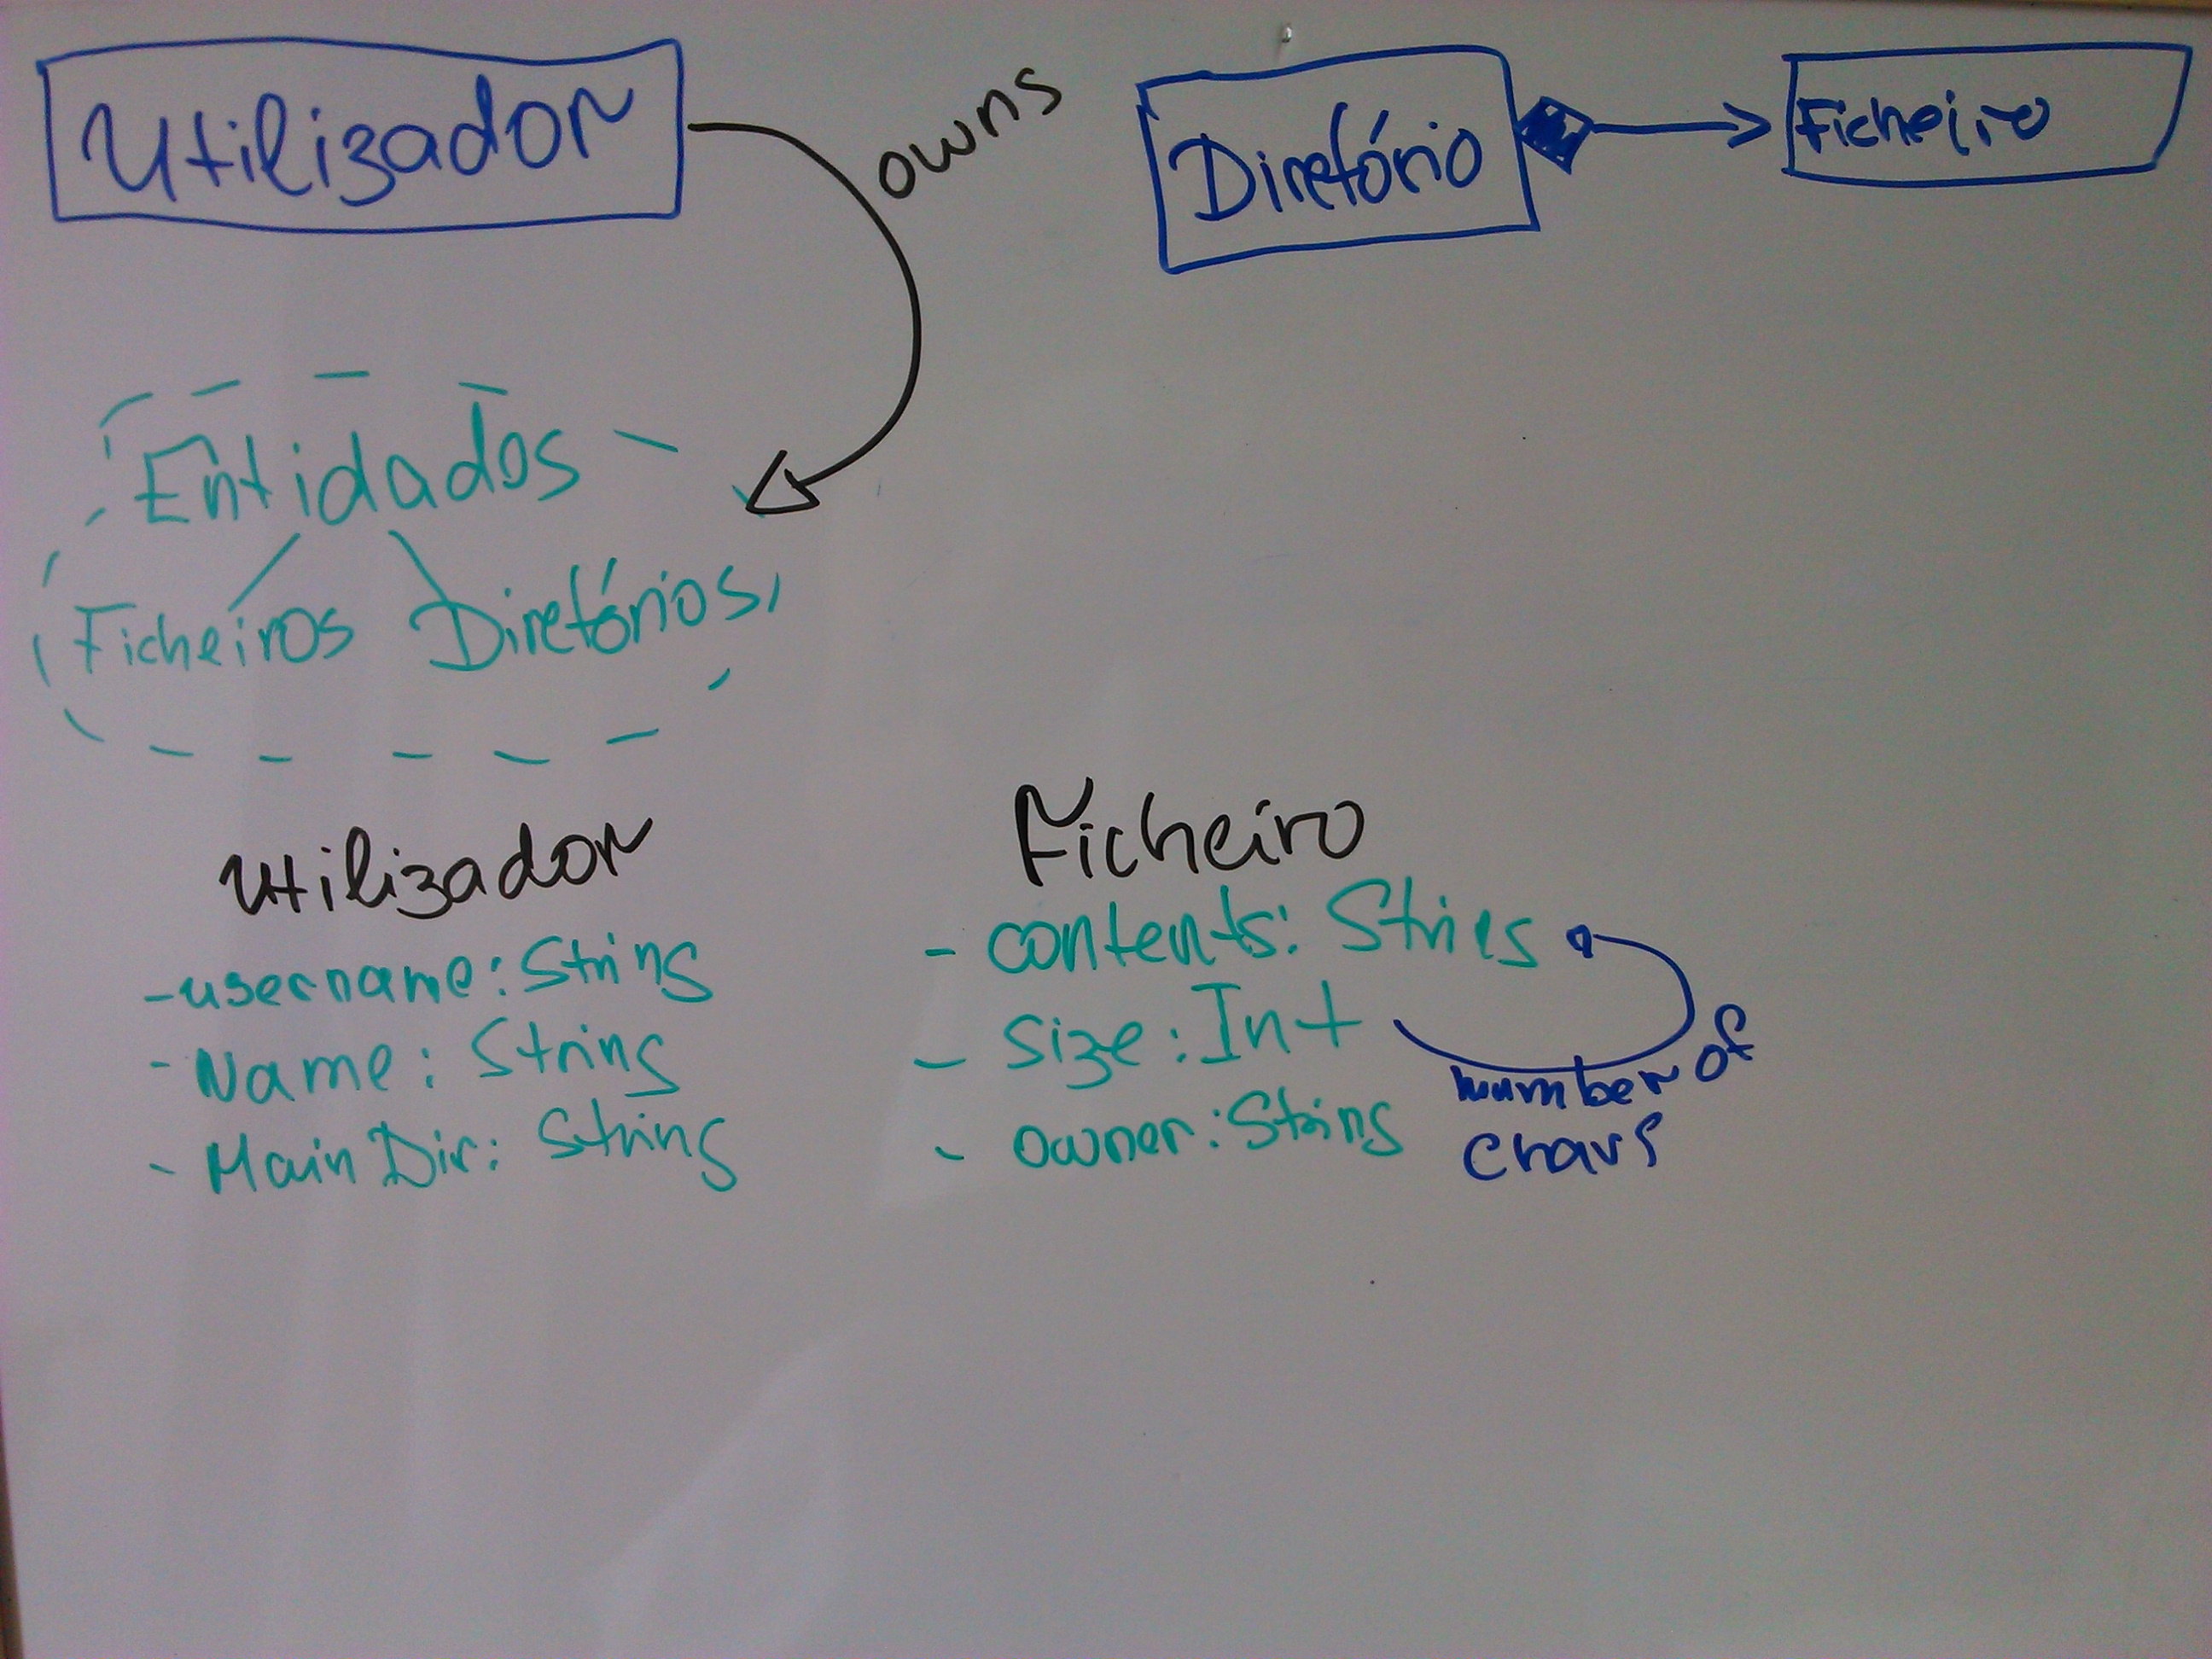 Utilizador
owns
Diretório
Ficheiro
Entidados
Ficheiros Diretórios
Utilizador
- username: String
- Name: String
- Main Dir: String
Ficheiro
- contents: String
- Size: Int
- owner: String
number of
chars